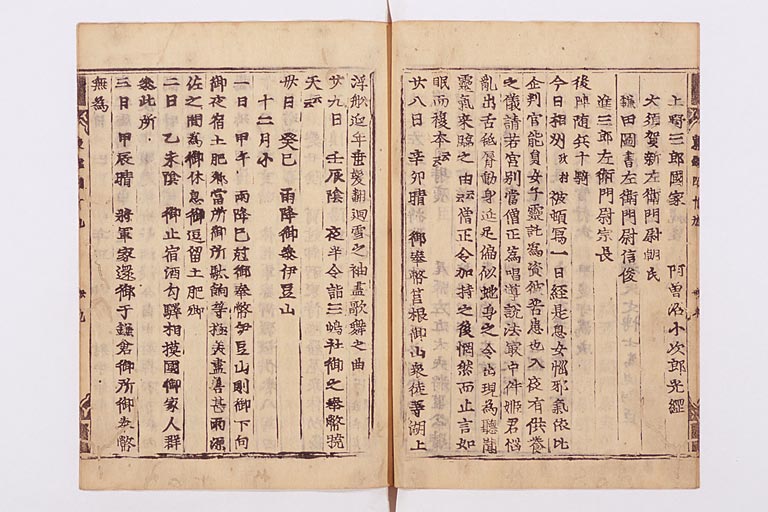 上野三郎國家　阿曽沼小次郎光經
大須賀新左衛門尉朝氏
鎌田圖書左衛門尉信俊
進三郎左衛門尉宗長
後陣随兵十騎
今日相州政村被頓寫一日經是息女惱邪氣依比
企判官能員女子靈託為資彼苦患也入夜有供養
之儀請若宮別當僧正為唱導説法最中件姫君惱
亂出舌舐脣動身延足偏似蛇身之令出現為聽聞
靈氣來臨之由云々僧正令加持之後惘然而止言如
眠而複本云々
廿八日　辛卯晴　御奉幣筥根御山衆徒等湖上
浮船延年垂髮翻廻雪之袖盡歌舞之曲
廿九日　壬辰陰　夜半令詣三嶋社御之奉幣曉
天云々
卅日　癸巳　雨降御參伊豆山
十二月小
一日　甲午　雨降巳尅御奉幣伊豆山則御下向
御夜宿土肥郷當所御所歌餉等極美盡善甚雨
之間為御休息御逗留土肥御
二日　乙未陰　御止宿酒匂驛相摸國御家人群
參此所
三日　甲辰晴　將軍家還御于鎌倉御所御奉幣
無為